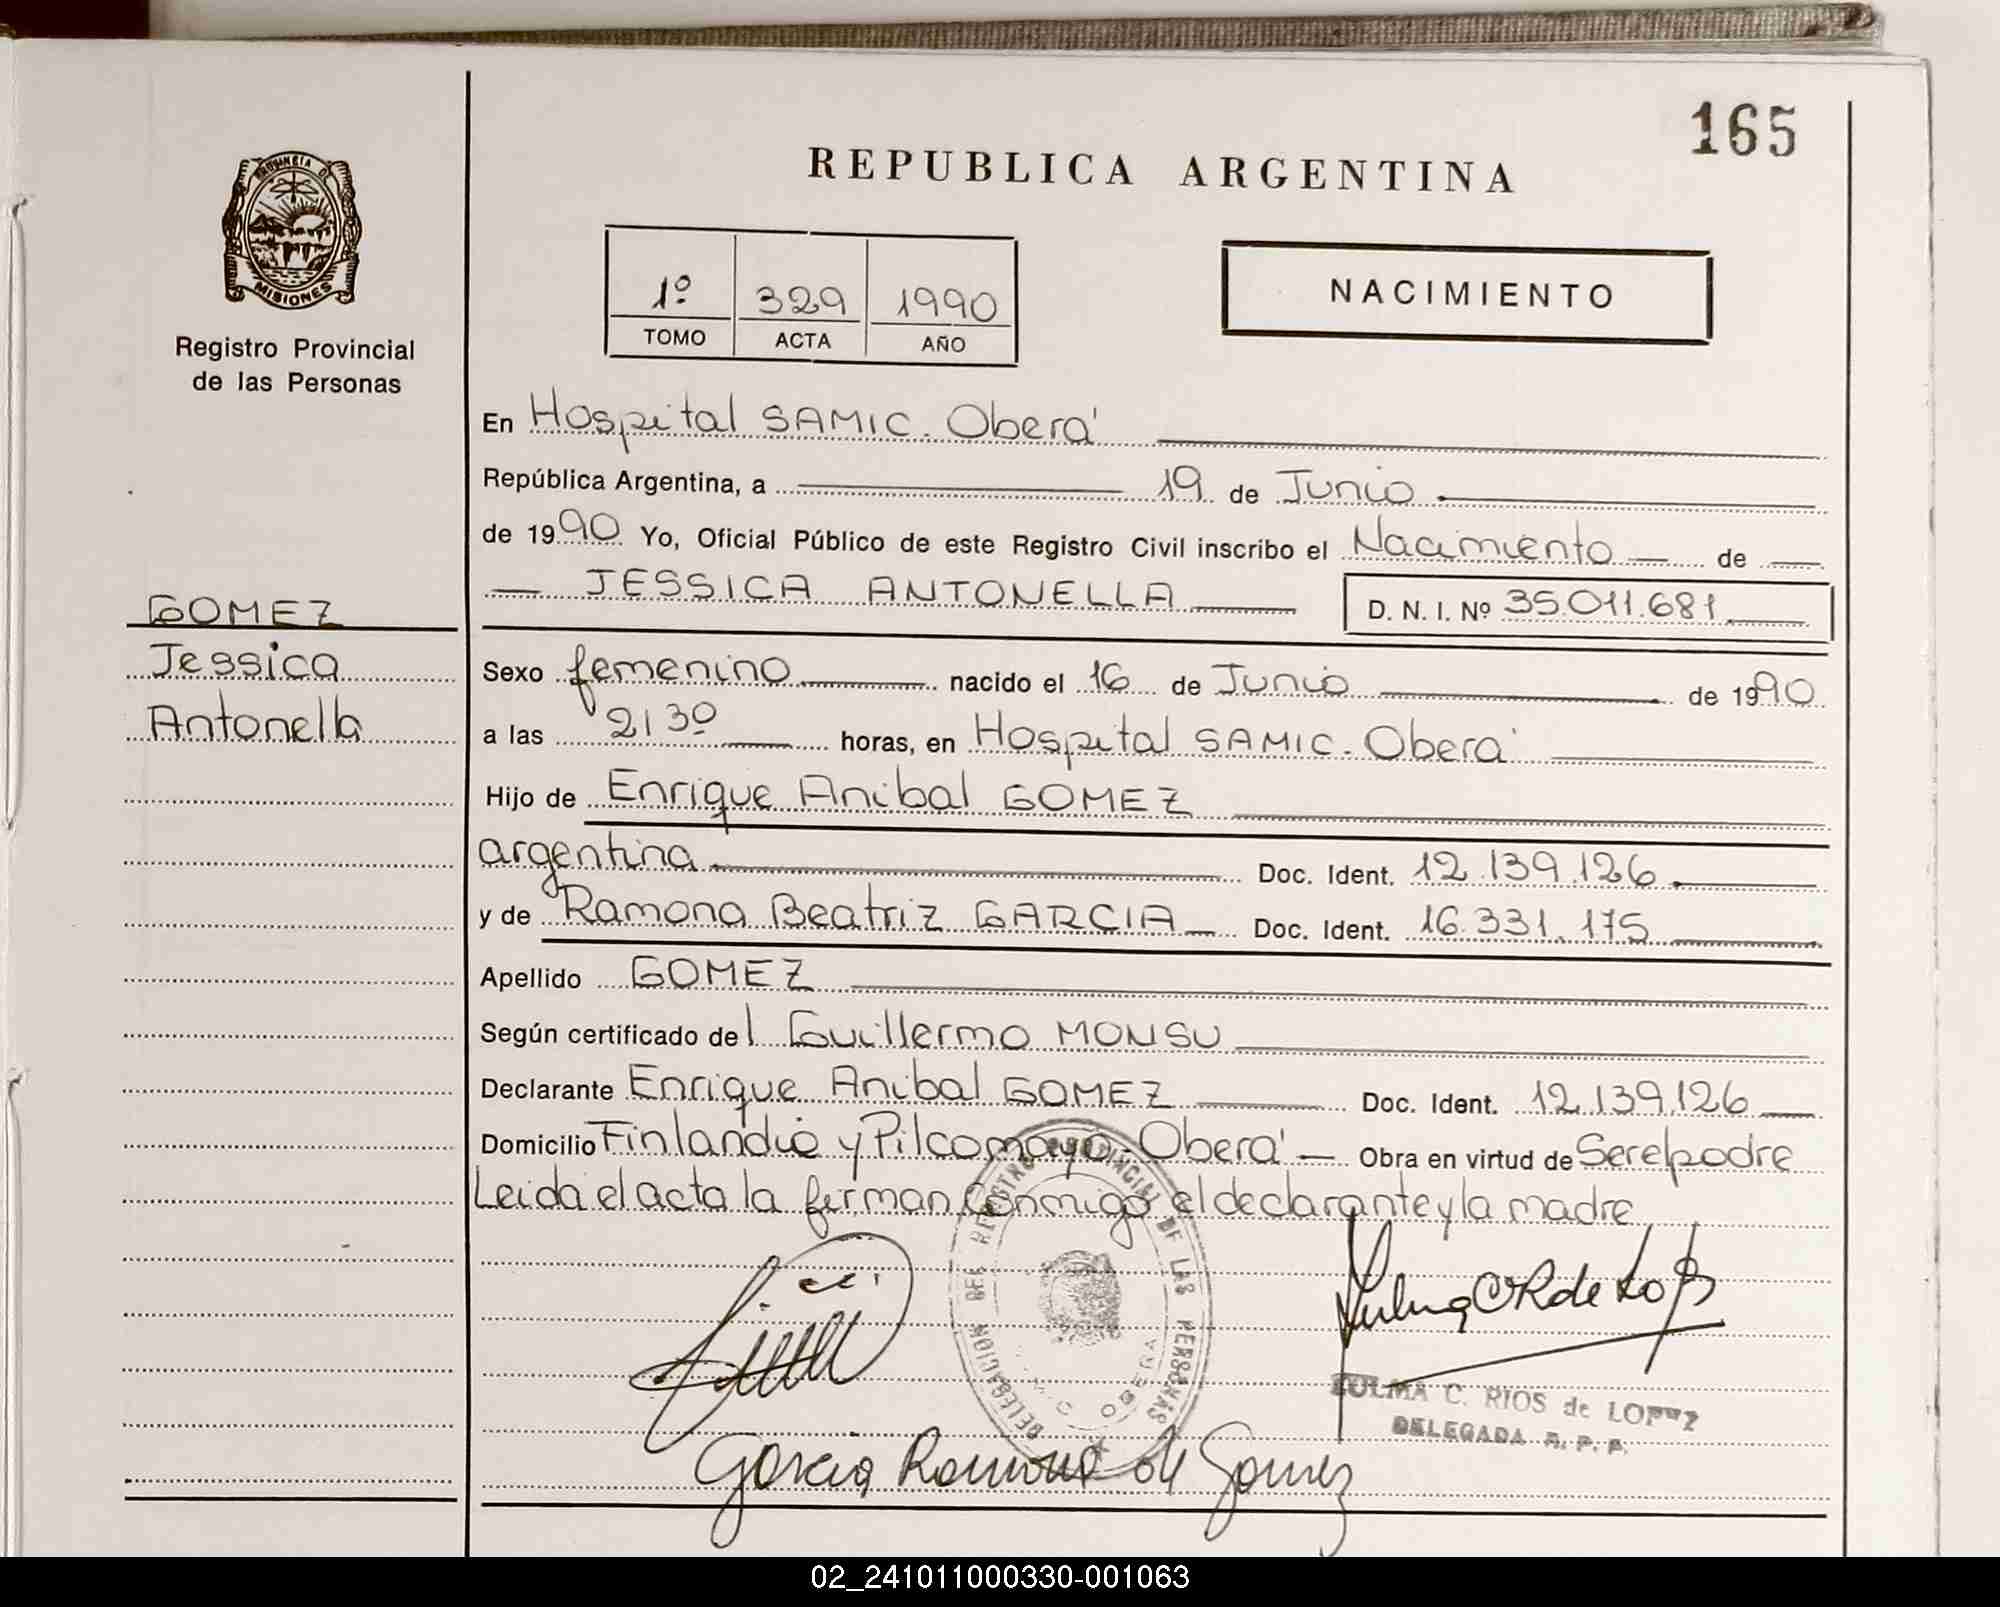 165
REPUBLICA ARGENTINA
PROVINCIA DE
MISIONES
Registro Provincial
de las Personas
1º 329 1990
TOMO ACTA AÑO
NACIMIENTO
En Hospital SAMIC. Oberá
República Argentina, a 19 de Junio
de 1990 Yo, Oficial Público de este Registro Civil inscribo el Nacimiento de
JESSICA ANTONELLA D. N. I. Nº 35.011.681
GOMEZ
Jessica
Antonella
Sexo femenino nacido el 16 de Junio de 1990
a las 2130 horas, en Hospital SAMIC. Oberá
Hijo de Enrique Anibal GOMEZ
argentina Doc. Ident. 12.139.126
y de Ramona Beatriz GARCIA Doc. Ident. 16.331.175
Apellido GOMEZ
Según certificado del Guillermo MONSU
Declarante Enrique Anibal GOMEZ Doc. Ident. 12.139.126
Domicilio Finlandia y Pilcomayo - Oberá Obra en virtud de Ser el padre
Leida el acta la firman conmigo el declarante y la madre
DELEGACION DEL REGISTRO PROVINCIAL DE LAS PERSONAS
OBERA
ZULMA C. RIOS de LOPEZ
DELEGADA R. P. P.
Garcia Ramona de Gomez
02_241011000330-001063